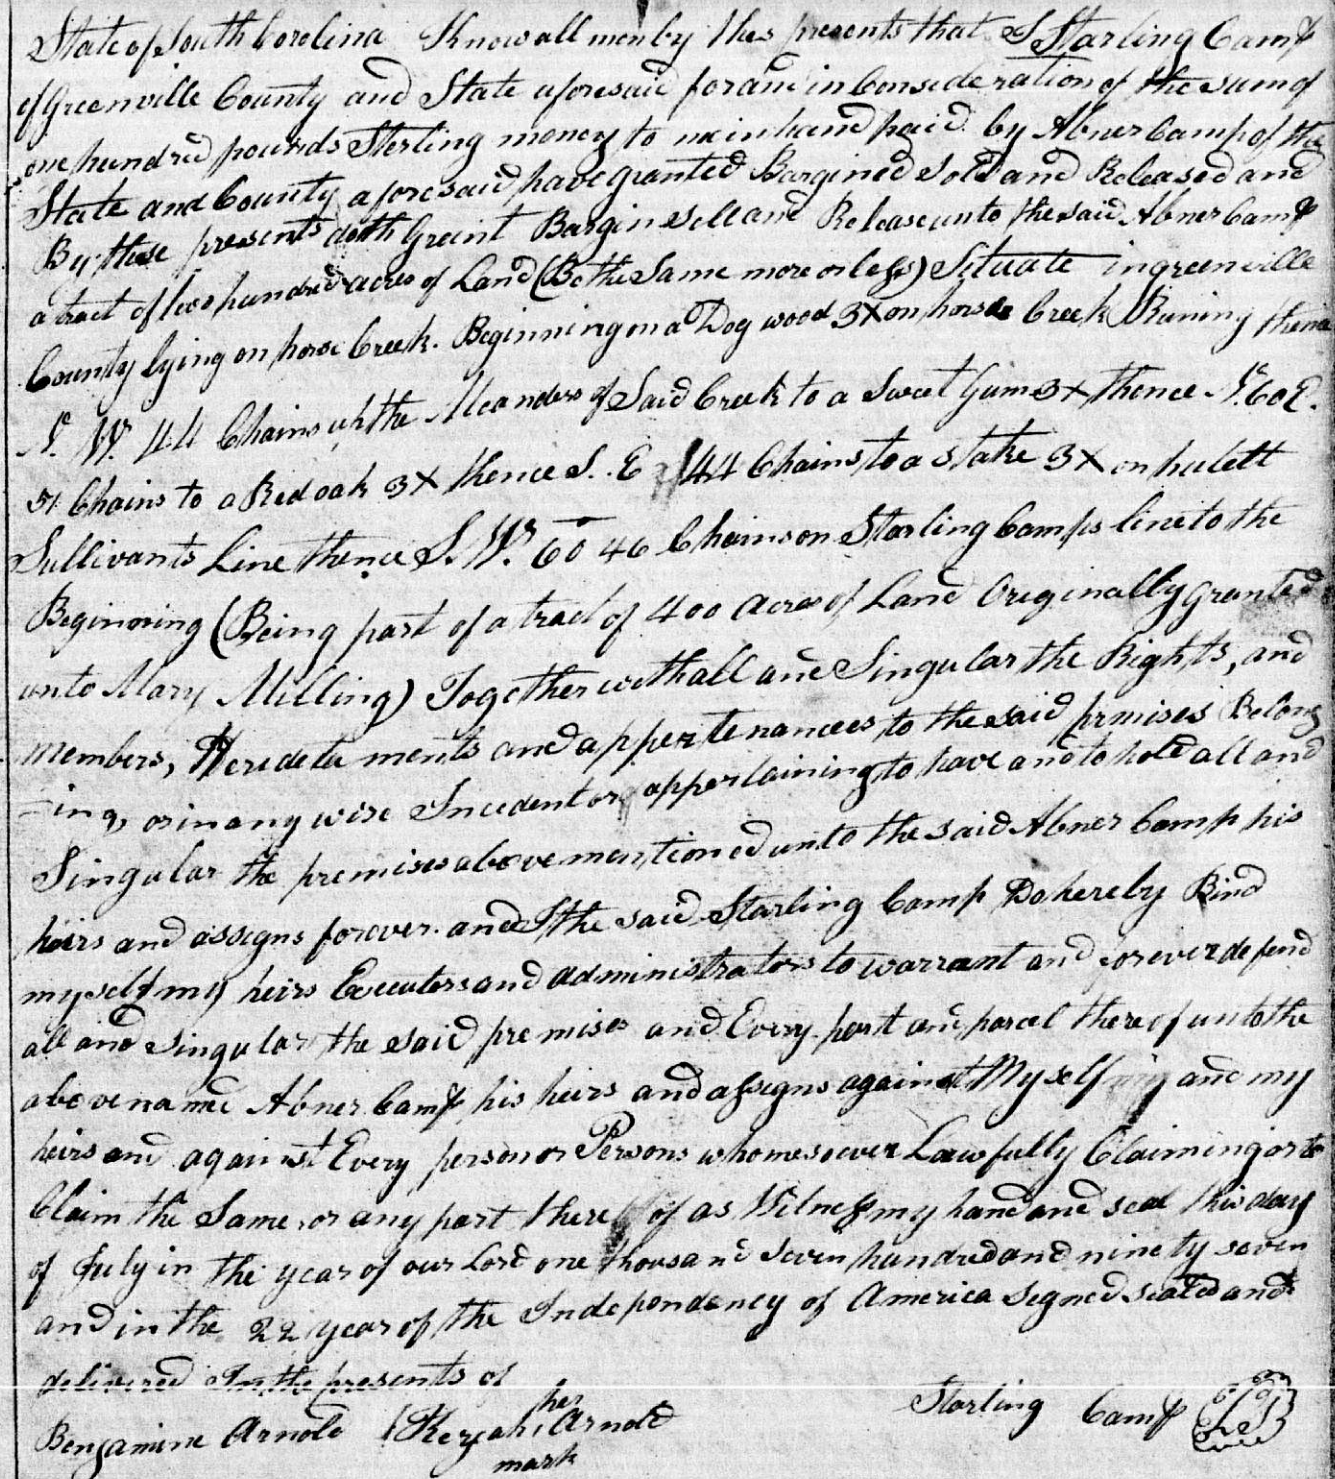 State of South Carolina Know all men by thes presents that I Starling Camp
of Greenville County and State aforesaid for and in Consideration of the sum of
one hundred pounds Sterling money to me in hand paid by Abner Camp of the
State and County aforesaid have granted Bargined Sold and Released and
By these presents doth Graint Bargin Sell and Release unto the said Abner Camp
a tract of two hundred acres of Land (Be the Same more or less) Situate in greenville
County lying on horse Creek. Beginning on a Dog wood 3X on horse Creek Runing thence
N. W. 44 Chains up the Meanders of Said Creek to a Sweet Gum 3X thence N. 60 E.
51 Chains to a Red oak 3X thence S. E 44 Chains to a Stake 3X on hulett
Sullivants Line thence S. W. 60 46 Chains on Starling Camps line to the
Beginning (Being part of a tract of 400 acres of Land Originally granted
unto Mary Milling) Together with all and Singular the Rights, and
members, Heredetaments and appertenances to the said prmises Belong
-ing, or in any wise Incedent or appertaining to have and to hold all and
Singular the premises above mentioned unto the said Abner Camp his
heirs and assigns forever. and I the said Starling Camp Do hereby Bind
myself my heirs Executors and administrators to warrant and forever defend
all and singular the said premises and Every part and parcel thereof unto the
above named Abner Camp his heirs and assigns against Myself and my
heirs and against Every person or Persons whomesoever Lawfully Claiming or to
Claim the Same, or any part there of as Witness my hand and seal this day
of July in the year of our Lord one thousand Seven hundred and ninety seven
and in the 22 year of the Independency of America signed sealed and
delivered In the presents of
her
Benjamine Arnold Kezeah Arnold Starling Camp
mark